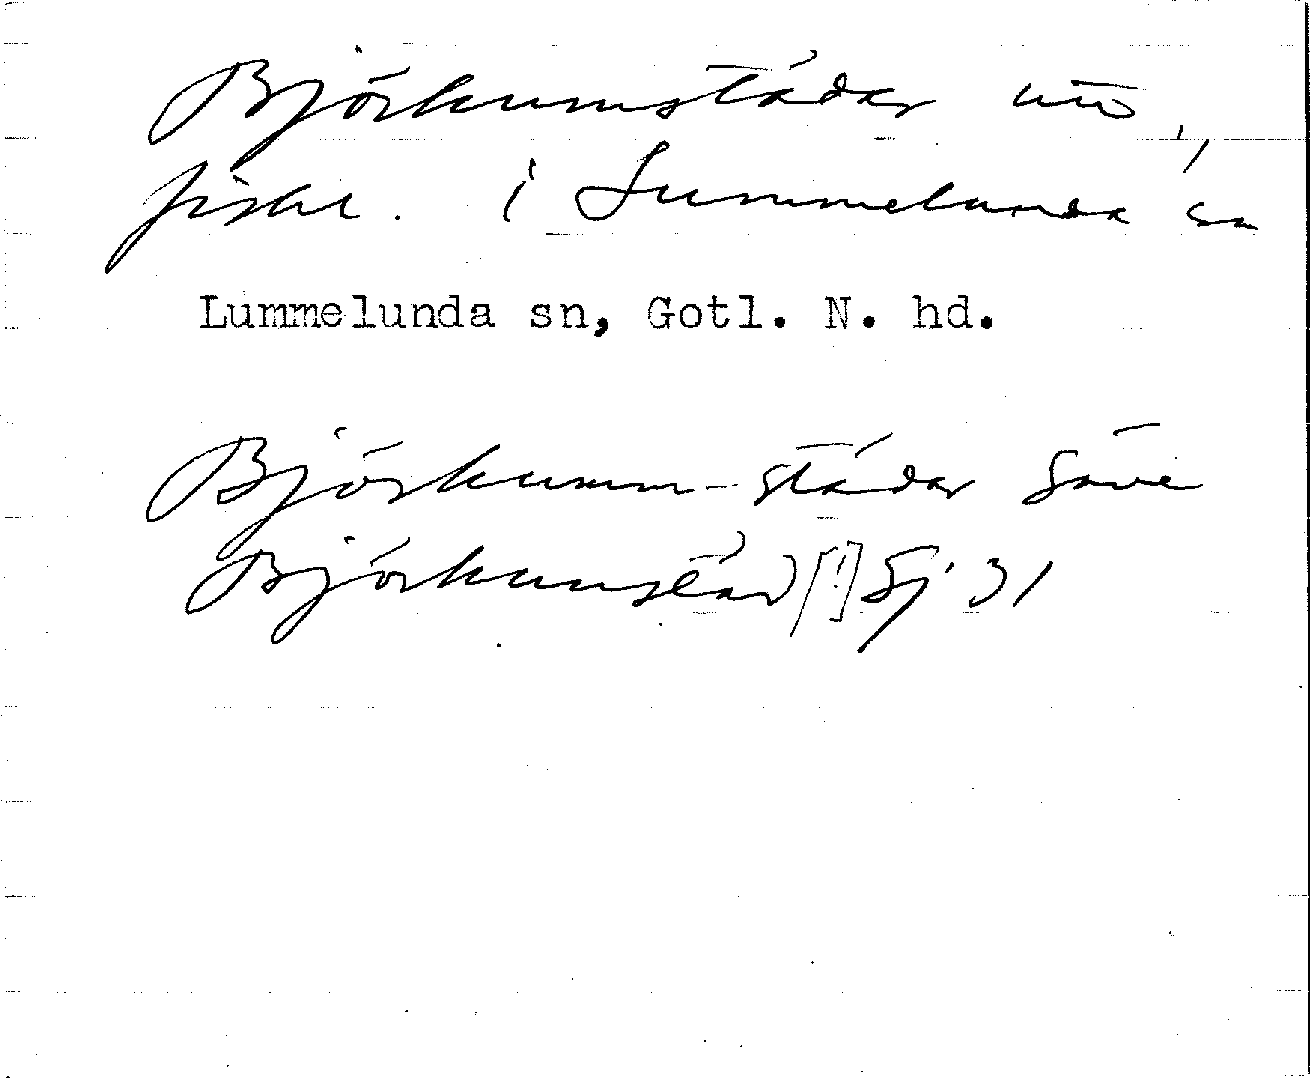 Björkumstädar
fiskel. i Lummelunda sn
Lummelunda sn, Gotl. N. hd.
Björkumm-städar Säve
Björkumstäd [!] Sj 31